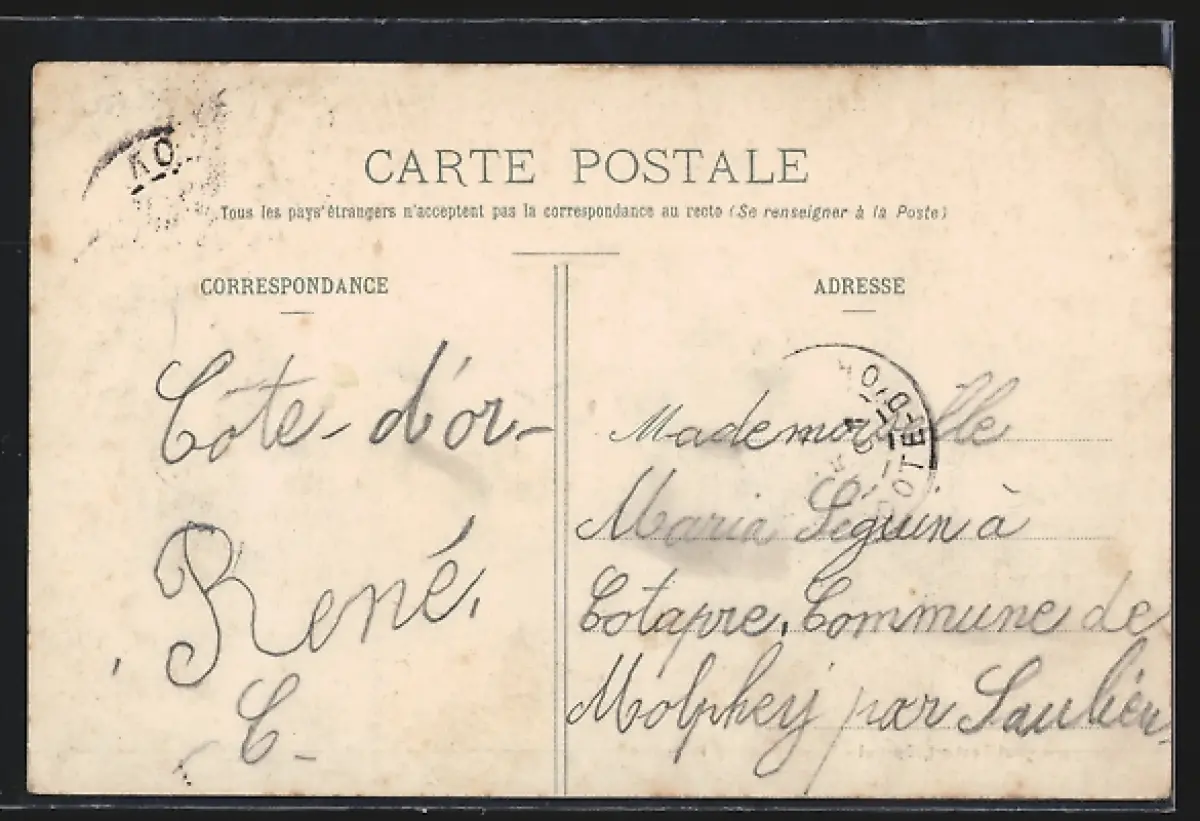 CARTE POSTALE
Tous les pays étrangers n'acceptent pas la correspondance au recto (Se renseigner à la Poste)
CORRESPONDANCE
Côte-d'or-
René.
C-
ADRESSE
Mademoiselle
Maria Séguin à
Cotapre, Commune de
Molphey par Saulieu